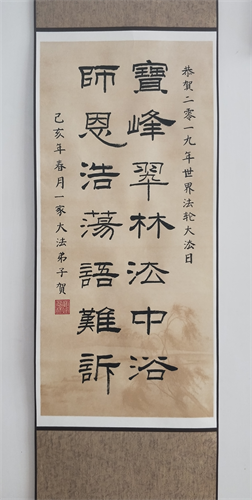 恭贺二零一九年世界法轮大法日
寶峰翠林法中浴
師恩浩蕩語難訴
己亥年春月一家大法弟子賀